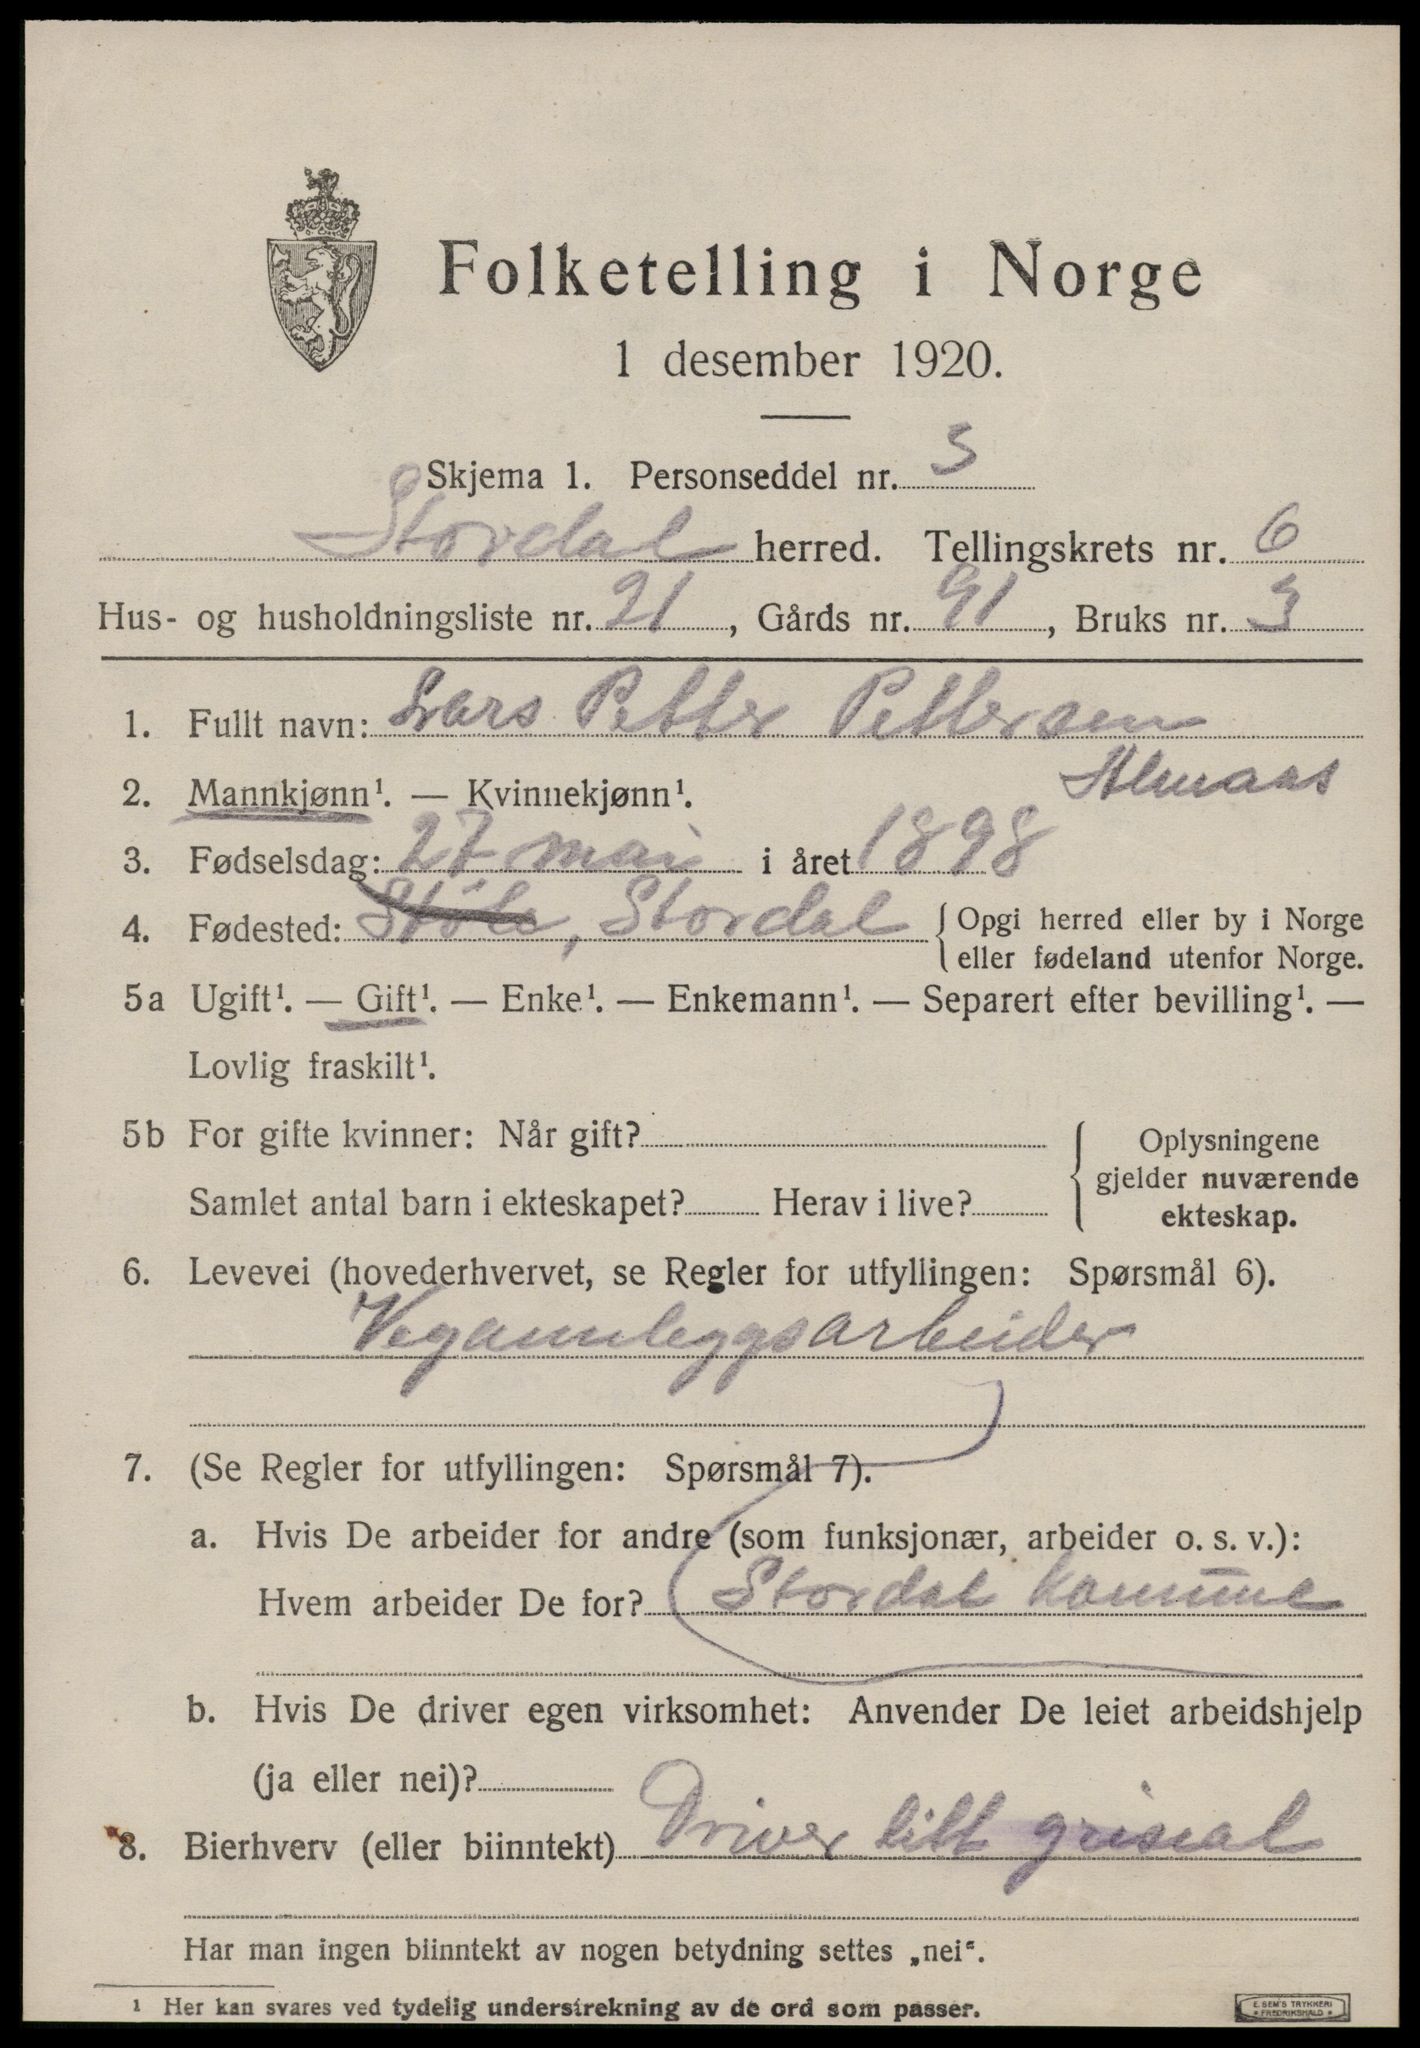 Folketelling i Norge
1 desember 1920.
Skjema 1. Personseddel nr. 3
Stordal herred. Tellingskrets nr. 6
Hus- og husholdningsliste nr. 21, Gårds nr. 91, Bruks nr. 3
1. Fullt navn: Lars Petter Pettersen
Almaas
2. Mannkjønn¹. — Kvinnekjønn¹.
3. Fødselsdag: 27 mai i året 1898
4. Fødested: Støle, Stordal { Opgi herred eller by i Norge
eller fødeland utenfor Norge.
5a Ugift¹. — Gift¹. — Enke¹. — Enkemann¹. — Separert efter bevilling¹. —
Lovlig fraskilt¹.
5b For gifte kvinner: Når gift?
Samlet antal barn i ekteskapet? Herav i live?
Oplysningene
gjelder nuværende
ekteskap.
6. Levevei (hovederhvervet, se Regler for utfyllingen: Spørsmål 6).
Vegannleggsarbeider
7. (Se Regler for utfyllingen: Spørsmål 7).
a. Hvis De arbeider for andre (som funksjonær, arbeider o. s. v.):
Hvem arbeider De for? Stordal komune
b. Hvis De driver egen virksomhet: Anvender De leiet arbeidshjelp
(ja eller nei)?
8. Bierhverv (eller biinntekt) Driver litt griseal
Har man ingen biinntekt av nogen betydning settes „nei“.
¹ Her kan svares ved tydelig understrekning av de ord som passer.
E. SEM'S TRYKKERI
FREDRIKSHALD